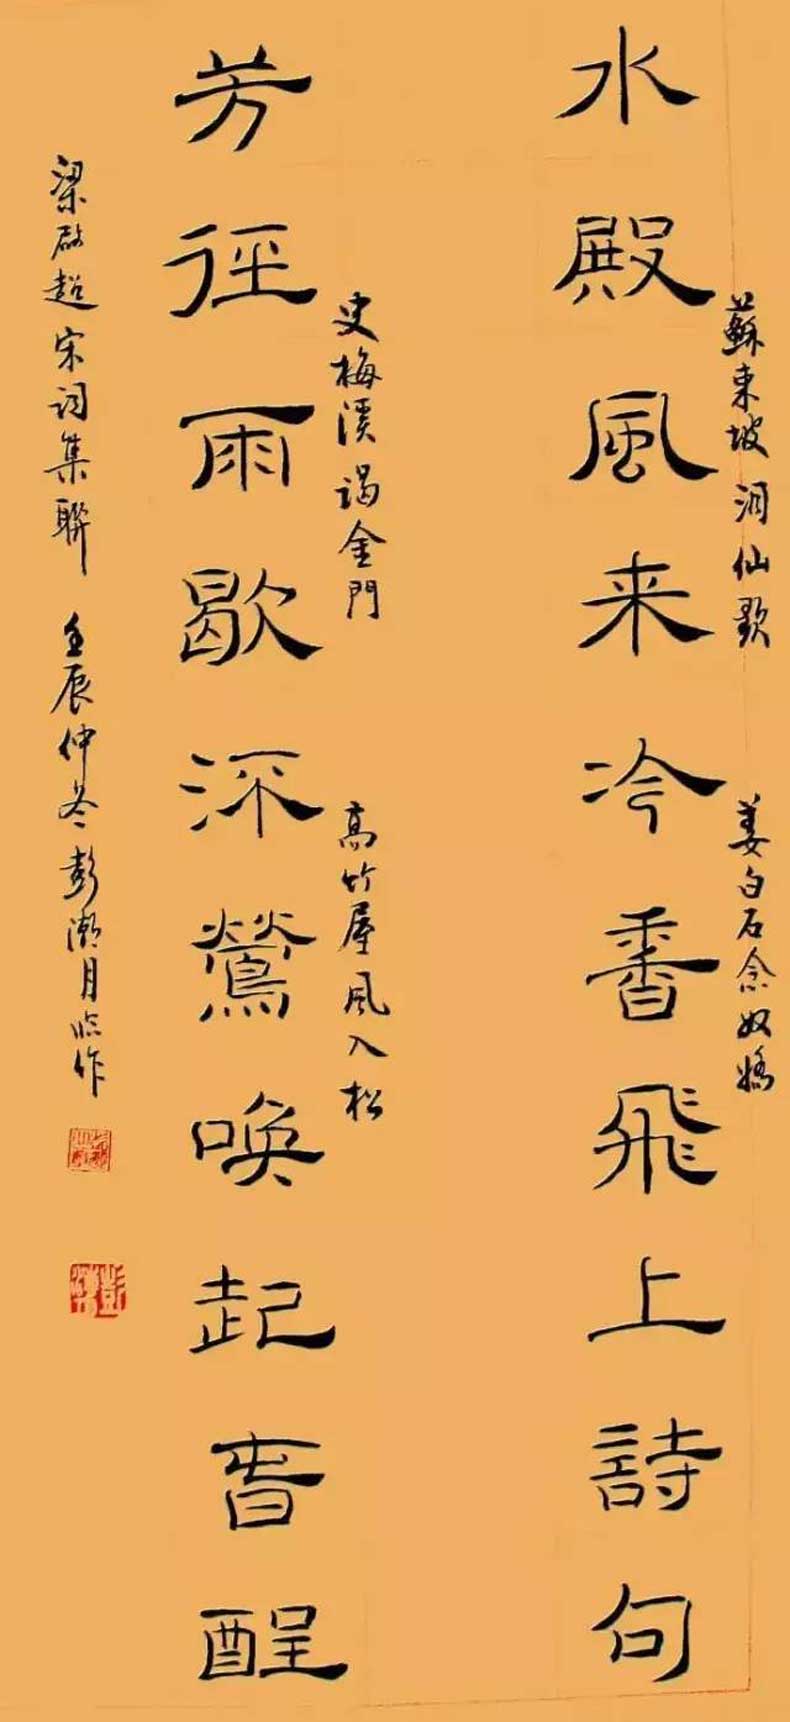 蘇東坡洞仙歌
姜白石念奴嬌
水殿風来冷香飛上詩句
史梅溪谒金門
高竹屋風入松
芳徑雨歇流鶯喚起春酲
梁啟超宋词集聯 壬辰仲冬彭漱月临作